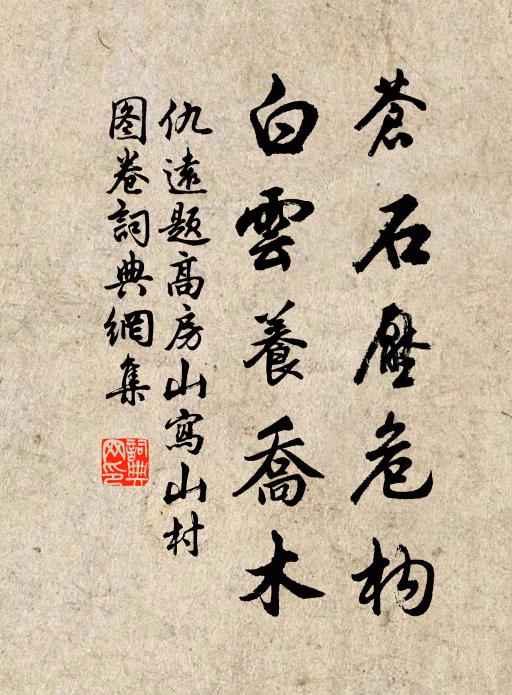 蒼石壓危构
白雲養喬木
仇遠題高房山寫山村
图卷詞典網集
詞典网印